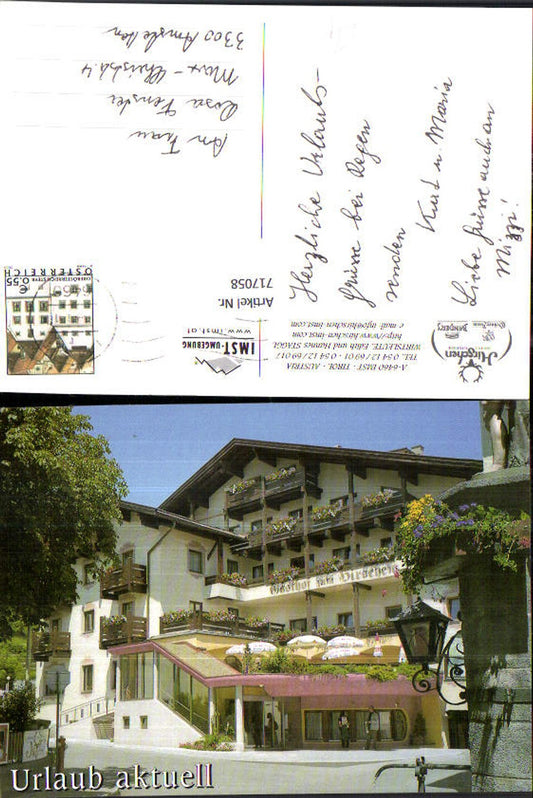 Herzliche Urlaubs-
grüsse bei Regen
senden
Kurt u. Maria
Liebe Grüsse auch an
Mizzi!
An Frau
Rosa
3300 Amstetten
0.55 €
ÖSTERREICH
Artikel Nr.
717058
IMST-UMGEBUNG
www.imst.at
Hirschen
A-6460 IMST · TIROL · AUSTRIA
WIRTSLEUTE, Edith und Hannes STAGGL
TEL. 0 54 12 / 69 01 · 0 54 12 / 69 01 7
http://www.hirschen-imst.com
e-mail: info@hirschen-imst.com
Gasthof zum Hirschen
Urlaub aktuell